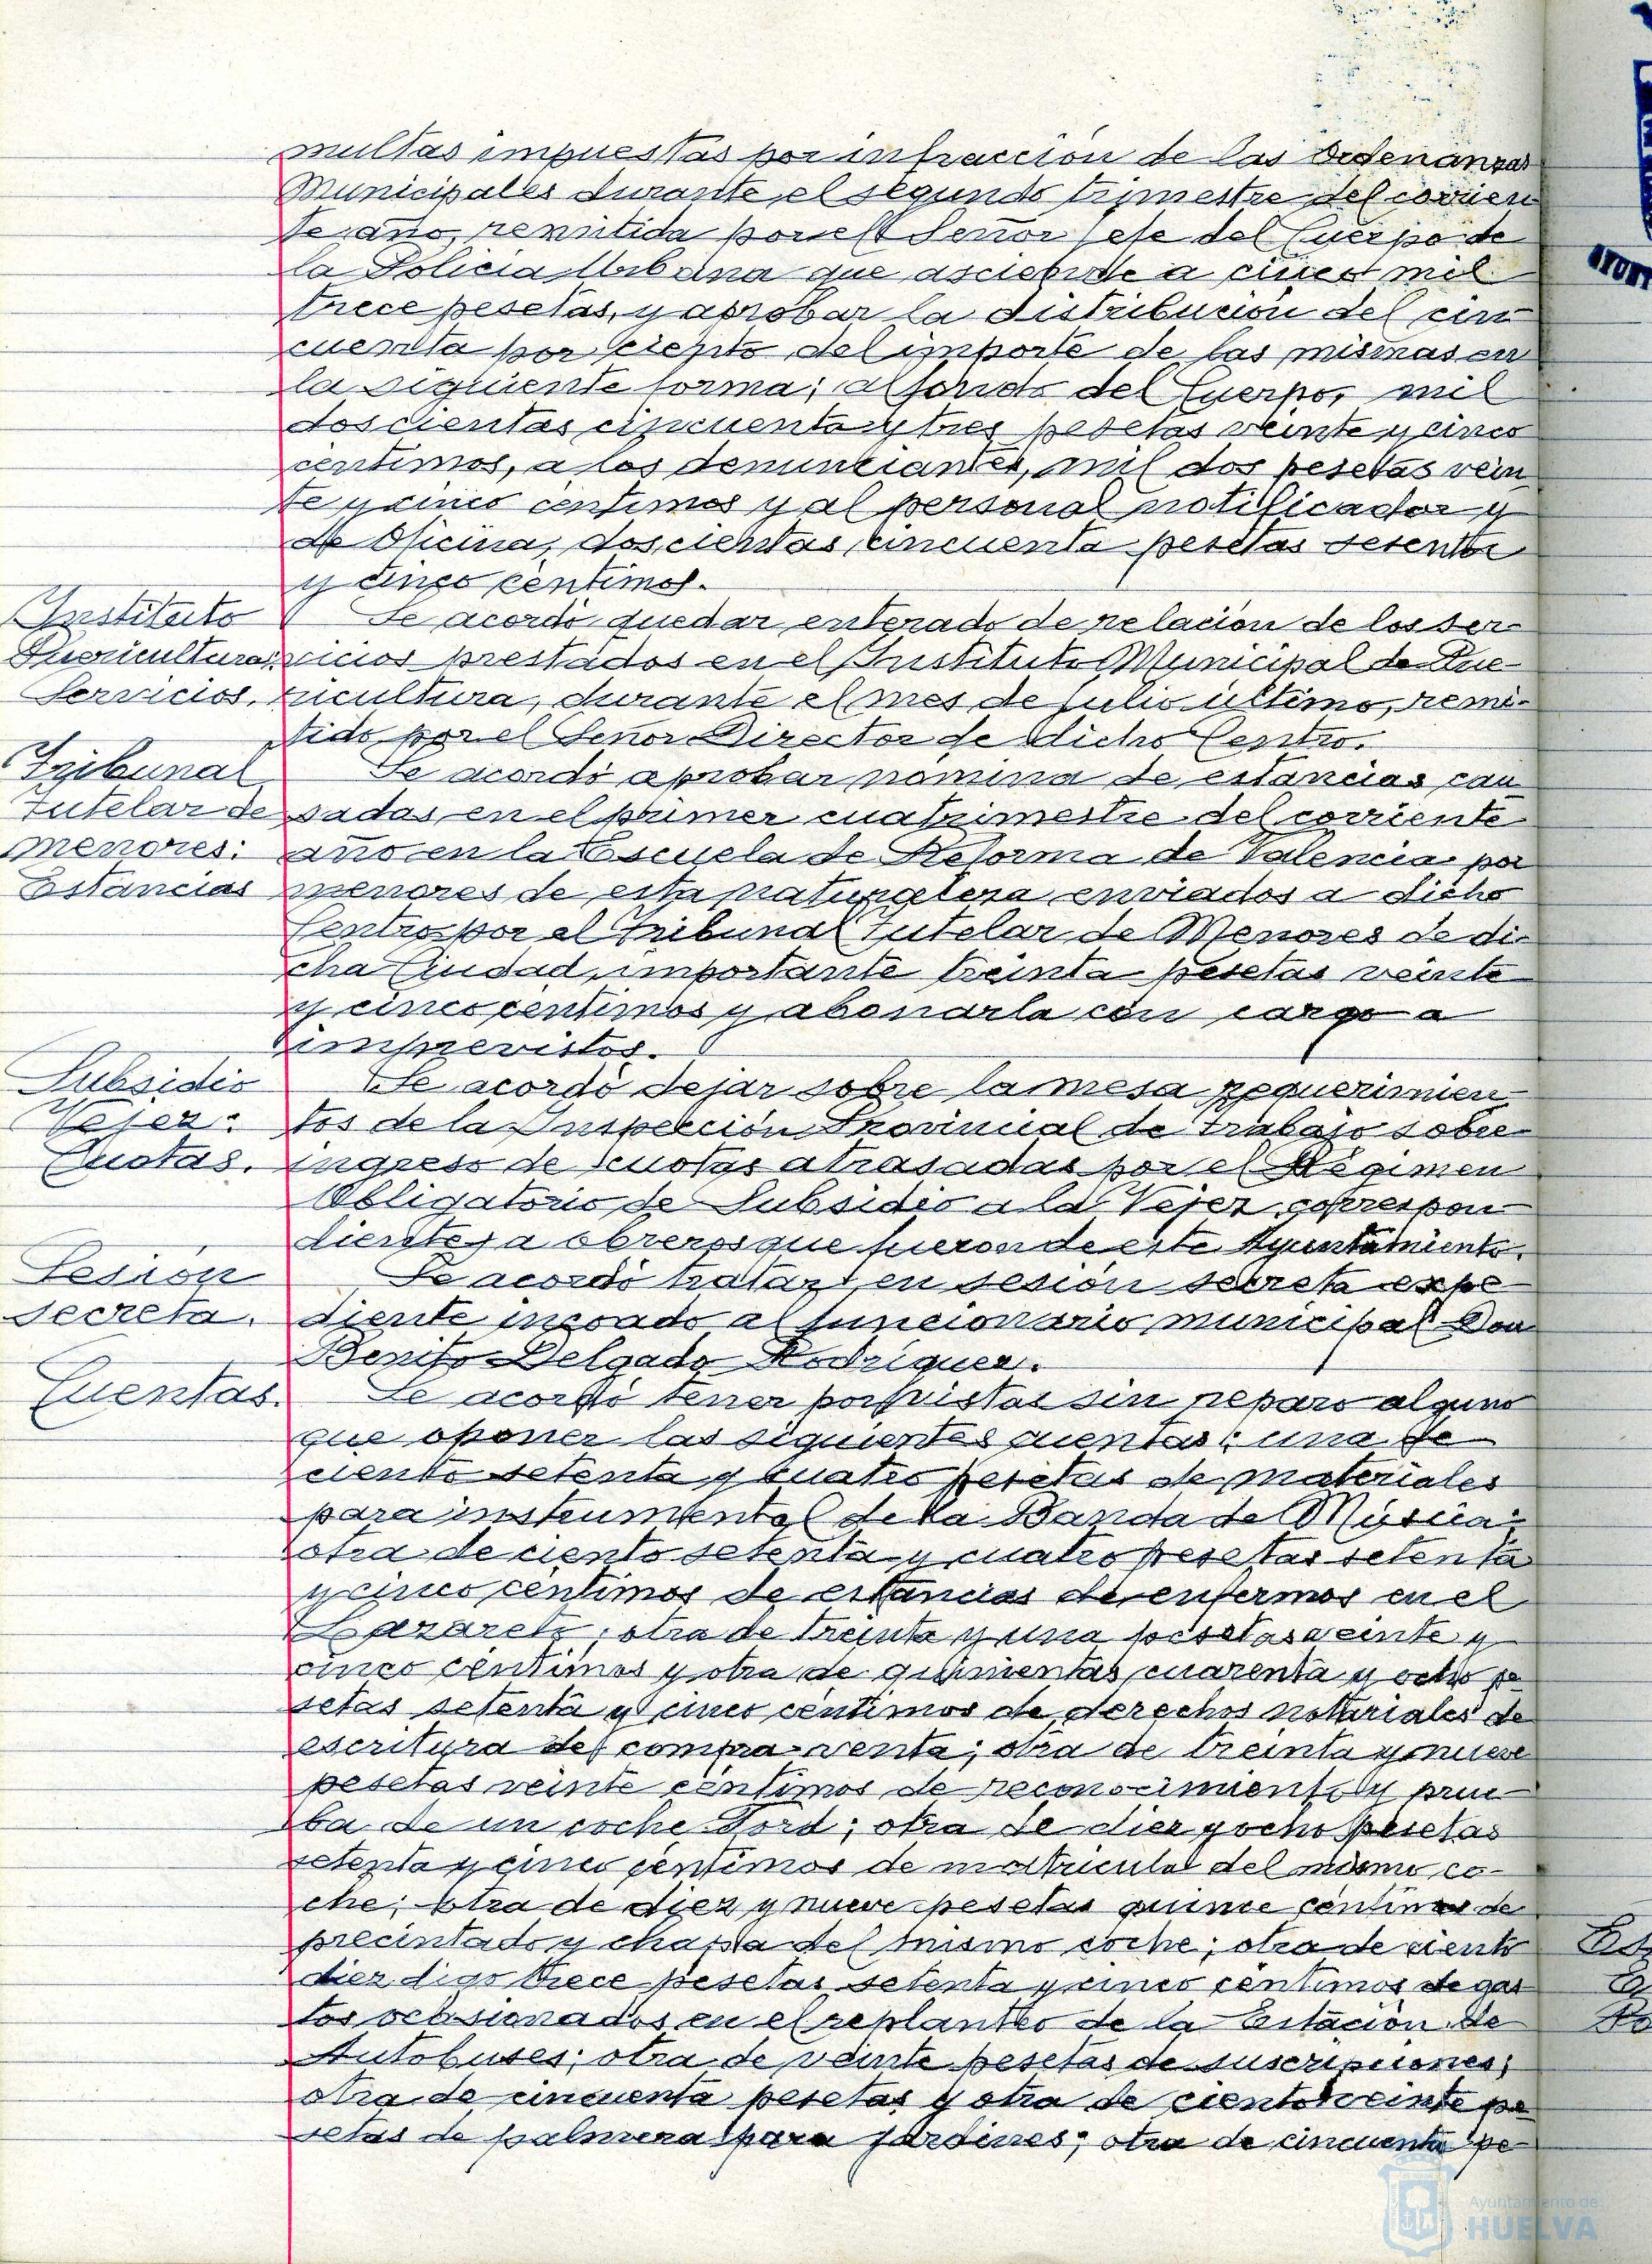 multas impuestas por infracción de las Ordenanzas
Municipales durante el segundo trimestre del corrien
te año, remitida por el Señor Jefe del Cuerpo de
la Policia Urbana que asciende a cinco mil
trece pesetas, y aprobar la distribución del cin
cuenta por ciento del importe de las mismas en
la siguiente forma; al fondo del Cuerpo, mil
doscientas cincuenta y tres pesetas veinte y cinco
centimos, a los denunciantes, mil dos pesetas vein
te y cinco centimos y al personal notificador y
de Oficina, doscientas cincuenta pesetas sesenta
y cinco céntimos.
Instituto
Puericultura;
Servicios.
Se acordó quedar enterado de relación de los ser-
vicios prestados en el Instituto Municipal de Pue-
ricultura, durante el mes de julio último, remi-
tido por el Señor Director de dicho Centro.
Tribunal
tutelar de
menores:
Estancias
Se acordó aprobar nómina de estancias cau
sadas en el primer cuatrimestre del corriente
año en la Escuela de Reforma de Valencia por
menores de esta naturaleza enviados a dicho
Centro por el Tribunal Tutelar de Menores de di-
cha Ciudad, importante treinta pesetas veinte
y cinco centimos y abonarla con cargo a
imprevistos.
Subsidio
Vejez:
Cuotas.
Se acordó dejar sobre la mesa requerimien
tos de la Inspección Provincial de Trabajo sobre
ingreso de cuotas atrasadas por el Régimen
Obligatorio de Subsidio a la Vejez correspon
dientes a obreros que fueron de este Ayuntamiento.
Sesión
secreta.
Se acordó tratar en sesión secreta expe
diente incoado al funcionario municipal Don
Benito Delgado Rodriguez.
Cuentas.
Se acordó tener por vistas sin reparo alguno
que oponer las siguientes cuentas: una de
ciento setenta y cuatro pesetas de materiales
para instrumental de la Banda de Música;
otra de ciento setenta y cuatro pesetas setenta
y cinco céntimos de estancias de enfermos en el
Lazareto; otra de treinta y una pesetas veinte y
cinco céntimos y otra de quinientas cuarenta y ocho pe
setas setenta y cinco céntimos de derechos notariales de
escritura de compra-venta; otra de treinta y nueve
pesetas veinte céntimos de reconocimiento y prue
ba de un coche Ford; otra de diez y ocho pesetas
setenta y cinco céntimos de matricula del mismo co-
che; otra de diez y nueve pesetas quince céntimos de
precintado y chapa del mismo coche; otra de ciento
diez digo trece pesetas setenta y cinco céntimos de gas
tos ocasionados en el replanteo de la Estación de
Autobuses; otra de veinte pesetas de suscripciones;
otra de cincuenta pesetas y otra de ciento veinte pe
setas de palmera para jardines; otra de cincuenta pe-
Ayuntamiento de
HUELVA